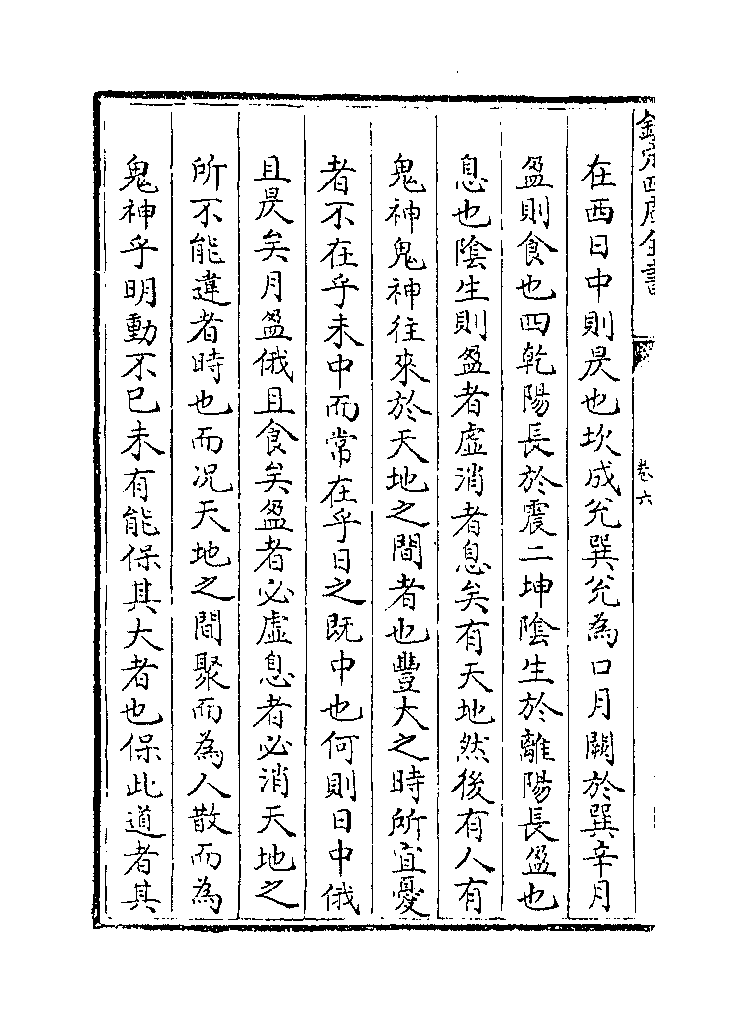 欽定四庫全書
卷六
在西日中則昃也坎成兊巽兊為口月闕於巽辛月
盈則食也四乾陽長於震二坤隂生於離陽長盈也
息也隂生則盈者虚消者息矣有天地然後有人有
鬼神鬼神往來於天地之間者也豐大之時所宜憂
者不在乎未中而常在乎日之既中也何則日中俄
且昃矣月盈俄且食矣盈者必虚息者必消天地之
所不能違者時也而况天地之間聚而為人散而為
鬼神乎明動不已未有能保其大者也保此道者其